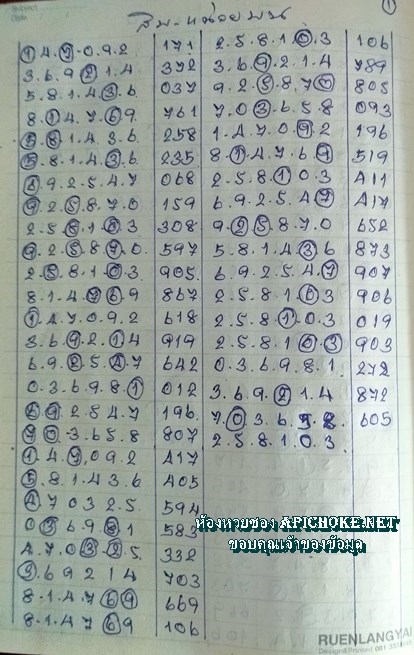 ①
สิบ-หน่วยบน
1.4.7.0.9.2 171
3.6.9.2.1.4 372
5.8.1.4.3.6 037
8.1.4.7.6.9 761
5.8.1.4.3.6 258
5.8.1.4.3.6 235
6.9.2.5.4.7 068
9.2.5.8.7.0 159
2.5.8.1.0.3 308
9.2.5.8.7.0 597
2.5.8.1.0.3 905
8.1.4.7.6.9 867
1.4.7.0.9.2 618
3.6.9.2.1.4 919
6.9.2.5.4.7 642
0.3.6.9.8.1 012
6.9.2.5.4.7 196
7.0.3.6.5.8 807
1.4.7.0.9.2 417
5.8.1.4.3.6 405
4.7.0.3.2.5 594
0.3.6.9.8.1 583
4.7.0.3.2.5 332
3.6.9.2.1.4 703
8.1.4.7.6.9 669
8.1.4.7.6.9 106
2.5.8.1.0.3 106
3.6.9.2.1.4 789
9.2.5.8.7.0 805
7.0.3.6.5.8 093
1.4.7.0.9.2 196
8.1.4.7.6.9 519
2.5.8.1.0.3 411
6.9.2.5.4.7 417
9.2.5.8.7.0 652
5.8.1.4.3.6 873
6.9.2.5.4.7 907
2.5.8.1.0.3 906
2.5.8.1.0.3 019
2.5.8.1.0.3 903
0.3.6.9.8.1 272
3.6.9.2.1.4 872
7.0.3.6.5.8 605
2.5.8.1.0.3
ห้องหวยซอง APICHOKE.NET
ขอบคุณเจ้าของข้อมูล
RUENLANGYAI